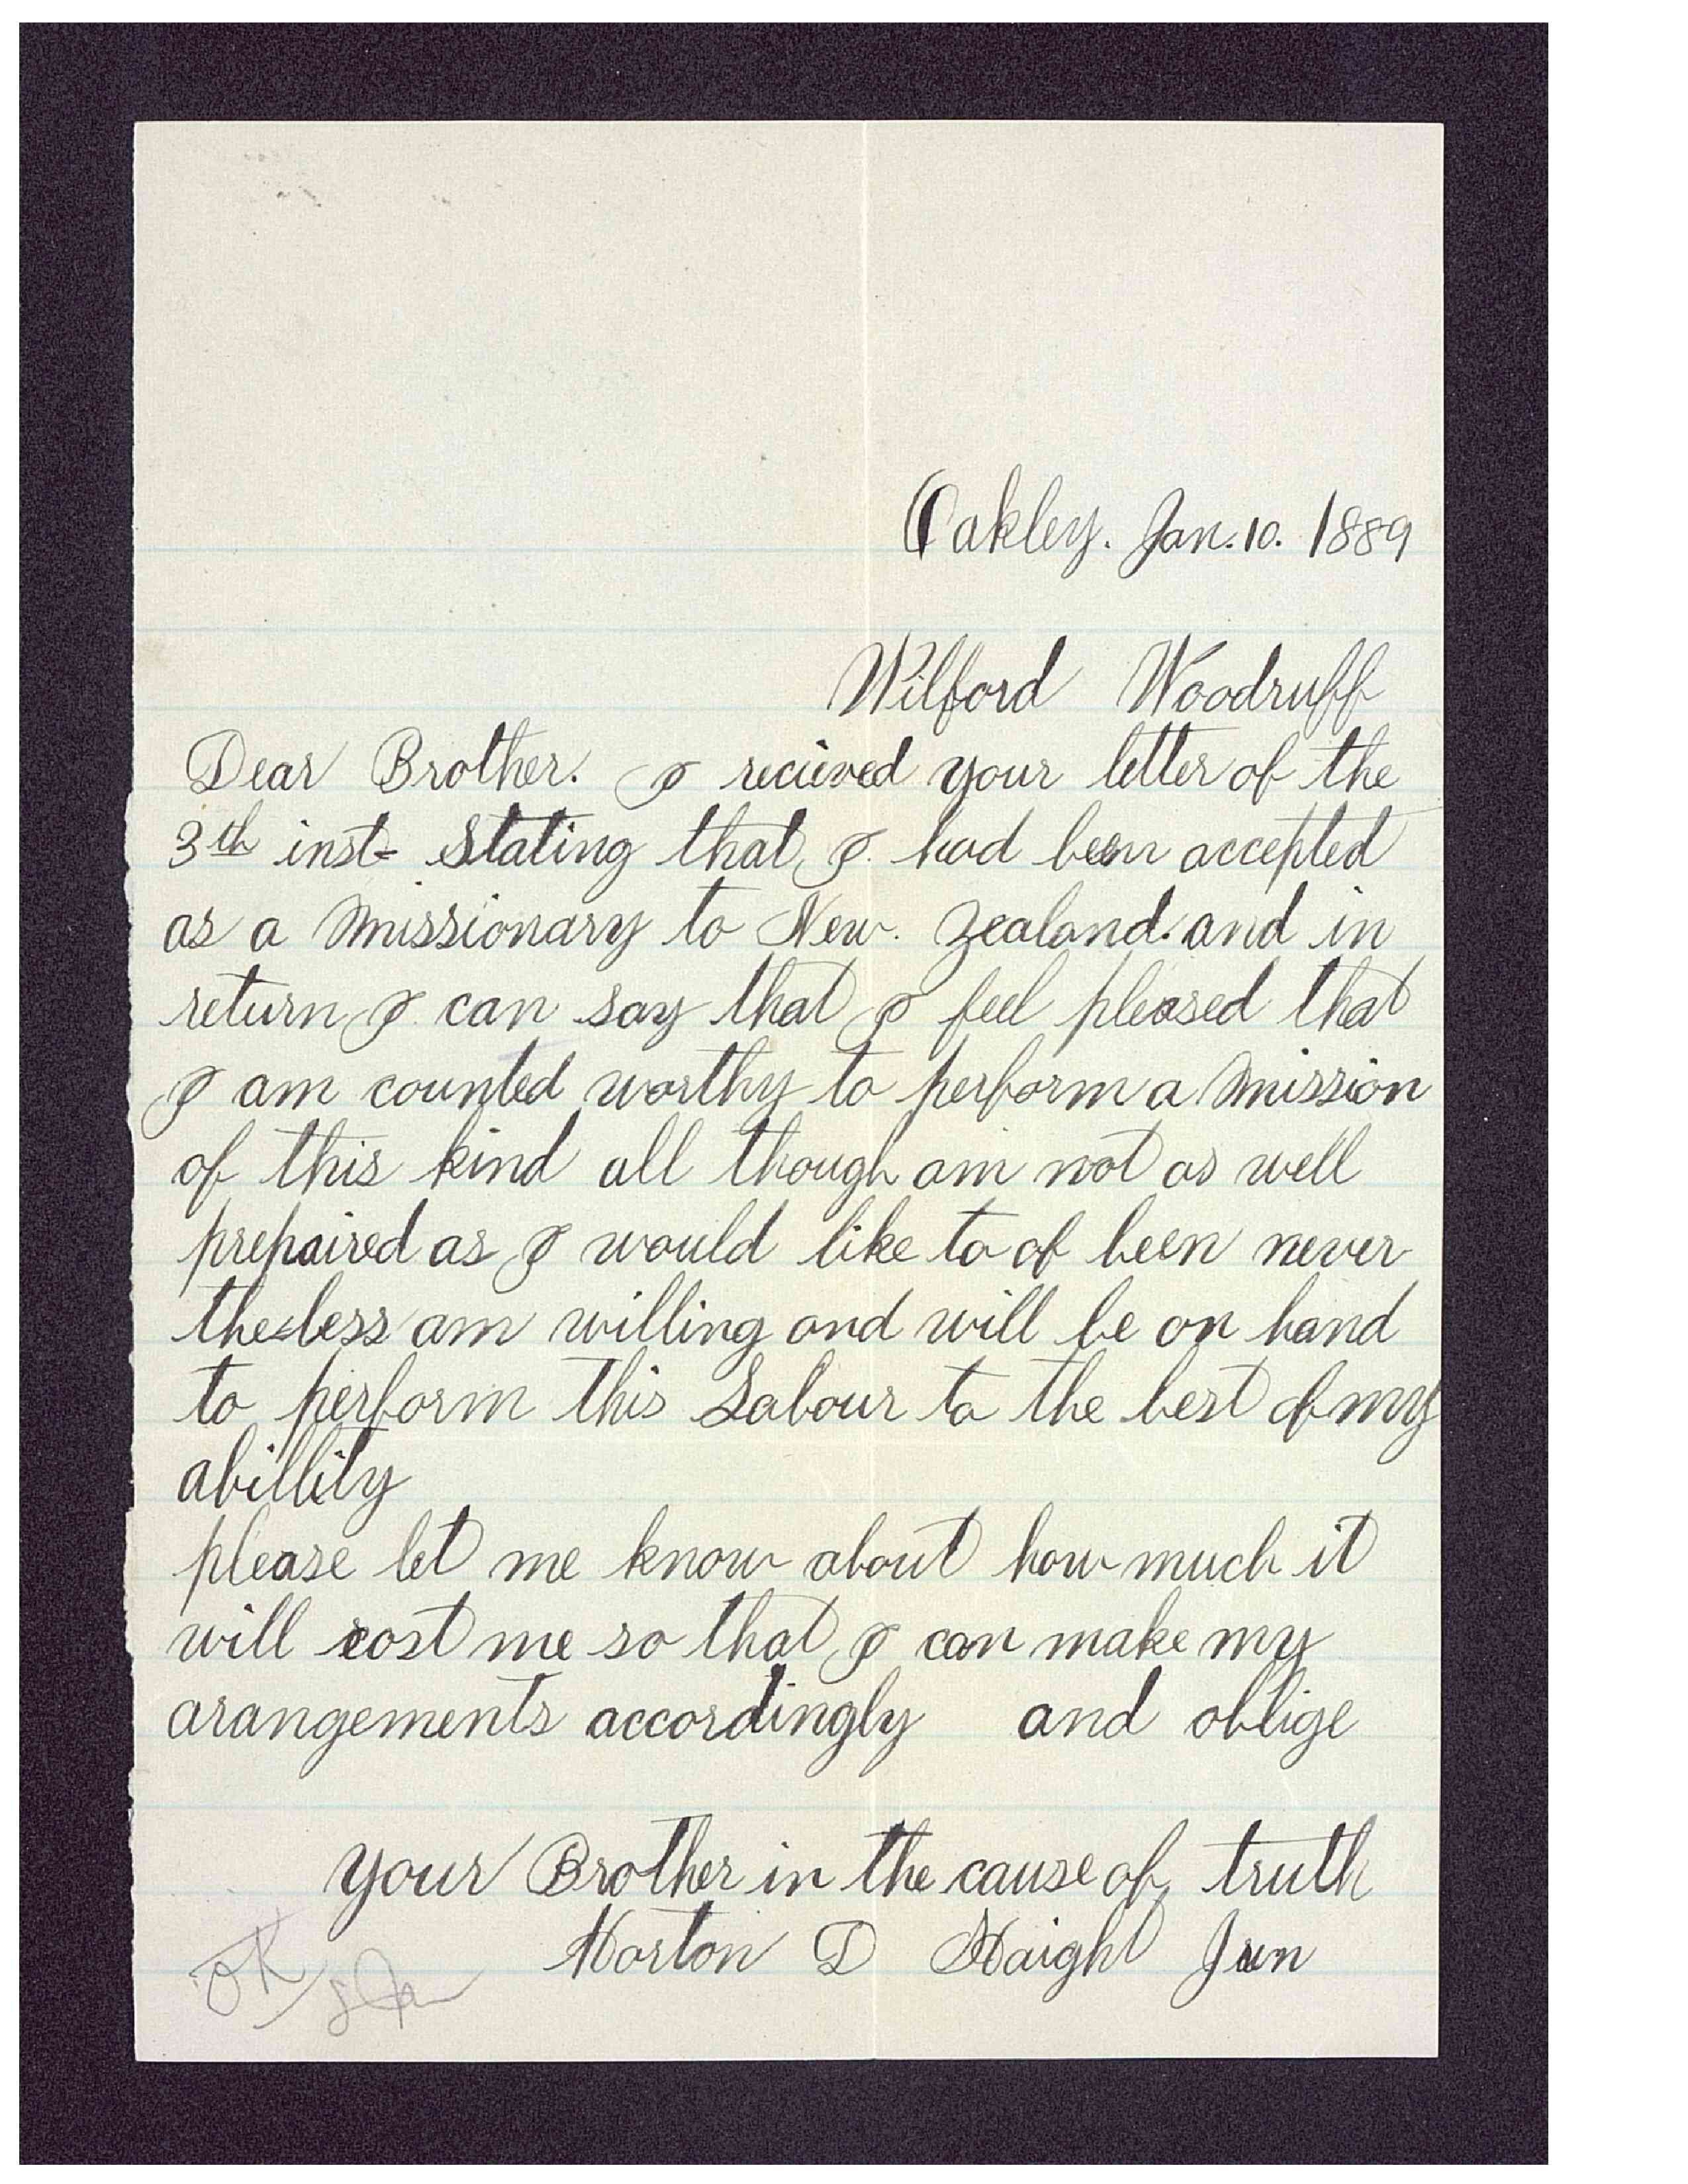 Oakley. Jan. 10. 1889
Wilford Woodruff
Dear Brother. I recieved your letter of the
3th inst- Stating that I had been accepted
as a Missionary to New. Zealand. and in
return I can say that I feel pleased that
I am counted worthy to perform a Mission
of this kind all though am not as well
prepaired as I would like to of been never
the=less am willing and will be on hand
to perform this Labour to the best of my
abillity
please let me know about how much it
will cost me so that I can make my
arangements accordingly and oblige
your Brother in the cause of truth
Horton D Haight Jun
OK